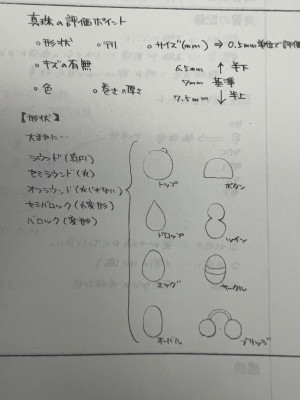 真珠の評価ポイント
○形状 ○テリ ○サイズ(mm) ⇒ 0.5mm単位で評価
○キズの有無 6.5mm ↑ 半下
7mm 基準
○色 ○巻きの厚さ 7.5mm ↓ 半上
【形状】
大まかに…
ラウンド(真円)
セミラウンド(丸)
オフラウンド
セミバロック
バロック(変形)
トップ ボタン
ドロップ ツイン
エッグ サークル
オーバル ブリッジ